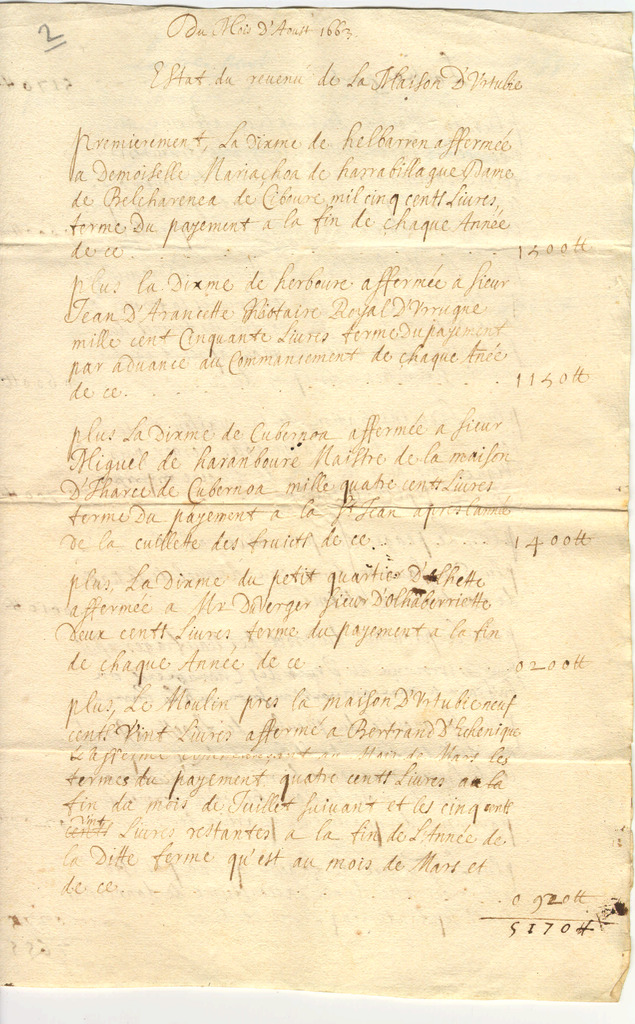 2
Du Mois D'Aoust 1663.
EStat du revenu de La Maison D'Urtubie
premierement, La dixme de helbarren affermée
a Demoiselle Mariachoa de harrabillague Dame
de Belcharenea de Ciboure mil cinq cents Livres,
terme Du payement a la fin de chaque Année
de ce . . . . . . 1500tt
plus la Dixme de herboure affermée a sieur
Jean D'Arancette Nottaire Royal D'Urrugne
mille cent Cinquante Livres terme Du payement
par advance au Commansement de chaque Anée
de ce . . . . . . 1150tt
plus La Dixme de Cubernoa affermée a sieur
Miguel de haranboure Maistre de la maison
De Cubernoa mille quatre cents Livres
terme Du payement a la St Jean apres l'anné
de la cuillette des fruicts de ce . . . . 1400tt
plus, La Dixme du petit quartier D'olhette
affermée a Mr Duverger sieur D'Olhaberriette
Deux cents Livres, terme du payement a la fin
de chaque Année de ce . . . . 0200tt
plus, Le Moulin pres la maison D'Urtubie neuf
cents Vint Livres affermé a Bertrand D'Echenique
L'afferme au Mois de Mars les
termes du payement quatre cents Livres a la
fin du mois de Juillet suivant et les cinq cents
Vint Livres restantes a la fin de L'Année de
la Ditte ferme qu'est au mois de Mars et
de ce . . . . . . 0920tt
5170tt